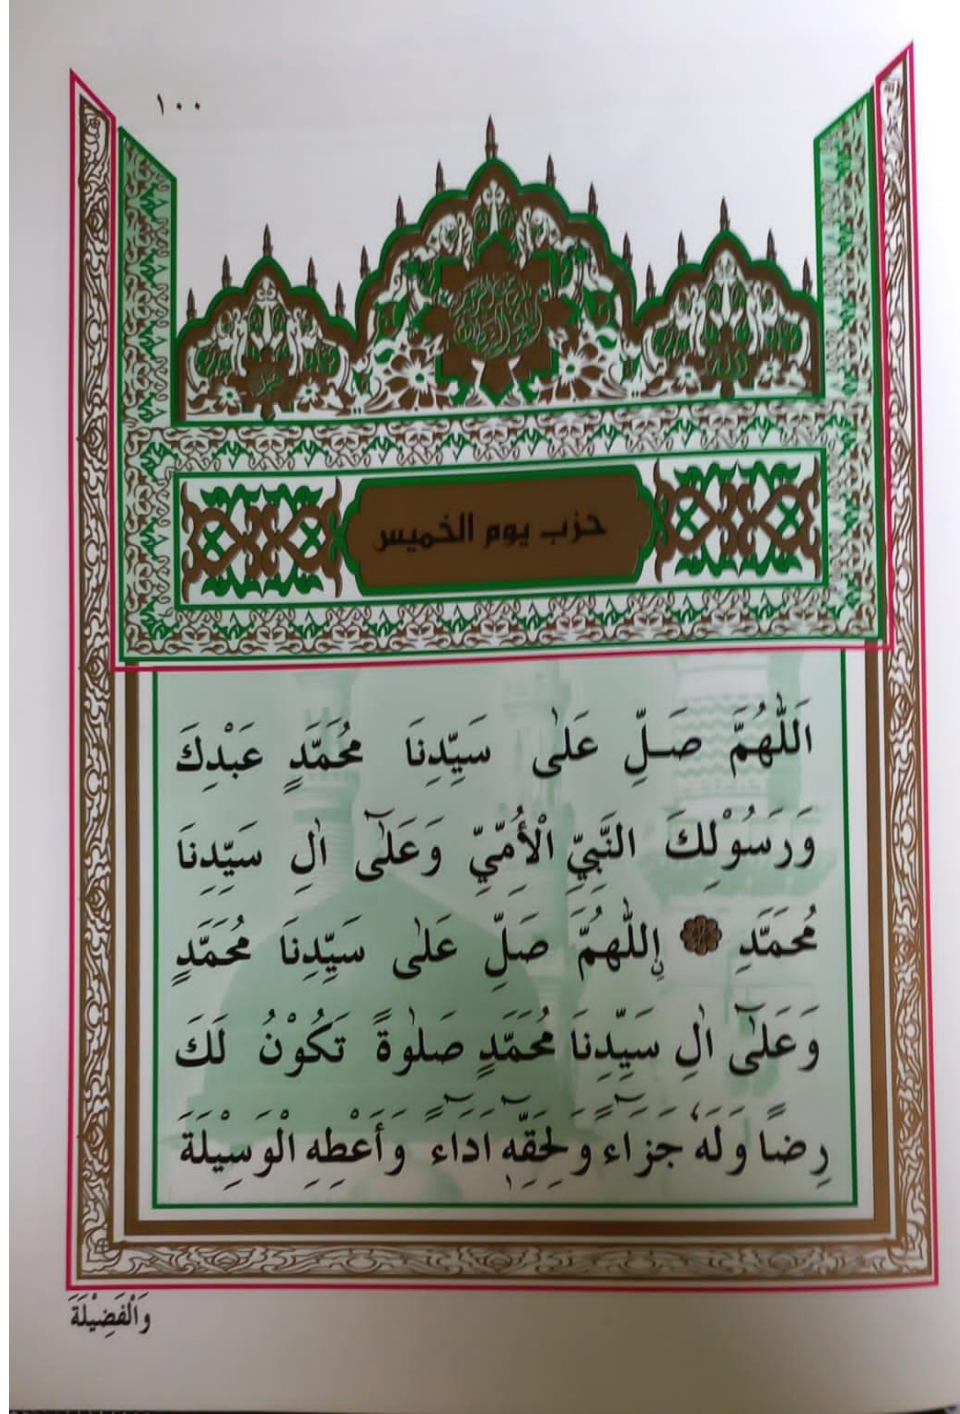 ١٠٠
حزب يوم الخميس
اَللّٰهُمَّ صَلِّ عَلٰى سَيِّدِنَا مُحَمَّدٍ عَبْدِكَ
وَرَسُوْلِكَ النَّبِيِّ الْاُمِّيِّ وَعَلٰٓى اٰلِ سَيِّدِنَا
مُحَمَّدٍ ۞ نِ اللّٰهُمَّ صَلِّ عَلٰى سَيِّدِنَا مُحَمَّدٍ
وَعَلٰٓى اٰلِ سَيِّدِنَا مُحَمَّدٍ صَلٰوةً تَكُوْنُ لَكَ
رِضًا وَلَهٗ جَزَآءً وَلِحَقِّهٖٓ اَدَآءً وَأَعْطِهِ الْوَسِيْلَةَ
وَالْفَضِيْلَةَ